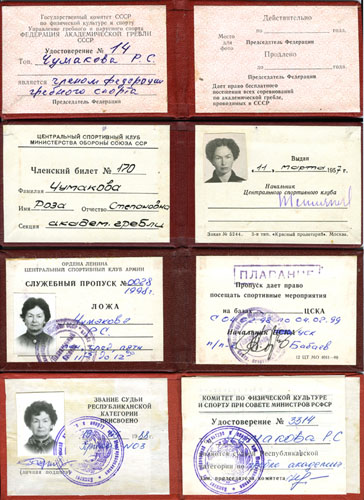 Государственный комитет СССР
по физической культуре и спорту
Управление гребного и парусного спорта
ФЕДЕРАЦИЯ АКАДЕМИЧЕСКОЙ ГРЕБЛИ
СССР
Удостоверение № 14
Тов. Чумакова Р.С.
является членом федерации
гребного спорта
Председатель Федерации
Действительно
по года.
Место для фото
Председатель Федерации
Продлено
до года.
Председатель Федерации
Дает право бесплатного
посещения всех соревнований
по академической гребле,
проводимых в СССР
ЦЕНТРАЛЬНЫЙ СПОРТИВНЫЙ КЛУБ
МИНИСТЕРСТВА ОБОРОНЫ СОЮЗА ССР
Членский билет № 170
Фамилия Чумакова
Имя Роза Отчество Степановна
Секция академ. гребли
Выдан
11 марта 1957 г.
Начальник
Центрального спортивного клуба
Заказ № 8244. 5-я тип. «Красный пролетарий». Москва.
ОРДЕНА ЛЕНИНА
ЦЕНТРАЛЬНЫЙ СПОРТИВНЫЙ КЛУБ АРМИИ
СЛУЖЕБНЫЙ ПРОПУСК № 0028
1998г.
ЛОЖА
Чумакова
Р.С.
ПЛАВАНИЕ
Пропуск дает право
посещать спортивные мероприятия
на базах ЦСКА
Начальник ЦСКА
Бабаев
ЗВАНИЕ СУДЬИ
РЕСПУБЛИКАНСКОЙ
КАТЕГОРИИ
ПРИСВОЕНО
КОМИТЕТ ПО ФИЗИЧЕСКОЙ КУЛЬТУРЕ
И СПОРТУ ПРИ СОВЕТЕ МИНИСТРОВ РСФСР
Удостоверение № 3514